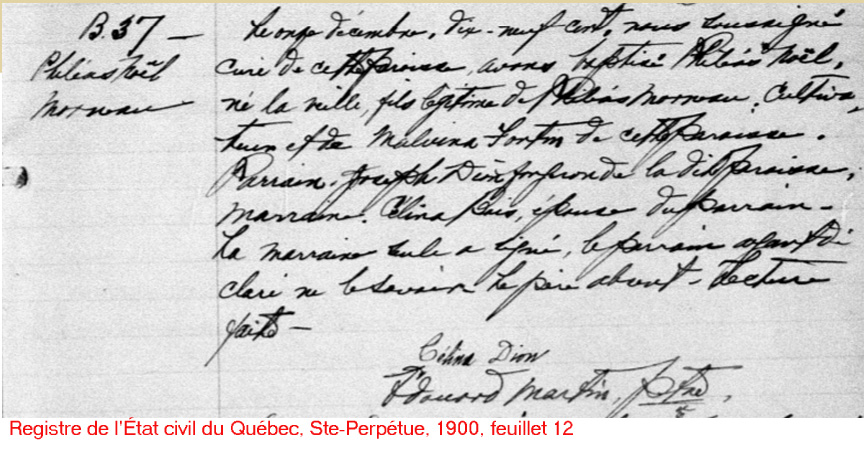 B.37 —
Philéas Noël
Morneau
Le onze décembre, dix-neuf cent, nous soussigné
curé de cette paroisse, avons baptisé Philéas Noël,
né la veille, fils légitime de Philéas Morneau, Cultiva-
teur et de Malvina Fortin de cette Paroisse.
Parrain, Joseph Dion de la dite paroisse,
marraine, Célina , épouse du parrain —
La marraine seule a signé, le parrain ayant dé
claré ne le savoir. Le père absent — Lecture
faite —
Célina Dion
Édouard Martin, Ptre,
Registre de l'État civil du Québec, Ste-Perpétue, 1900, feuillet 12